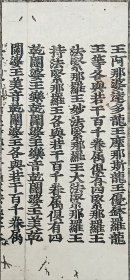 王阿那婆達多龍王摩那斯龍王優鉢羅龍
王等各與若干百千眷属俱有四緊那羅王
法緊那羅王妙法緊那羅王大法緊那羅王
持法緊那羅王各與若干百千眷属俱有四
乾闥婆王樂乾闥婆王樂音乾闥婆王美乾
闥婆王美音乾闥婆王各與若干百千眷属